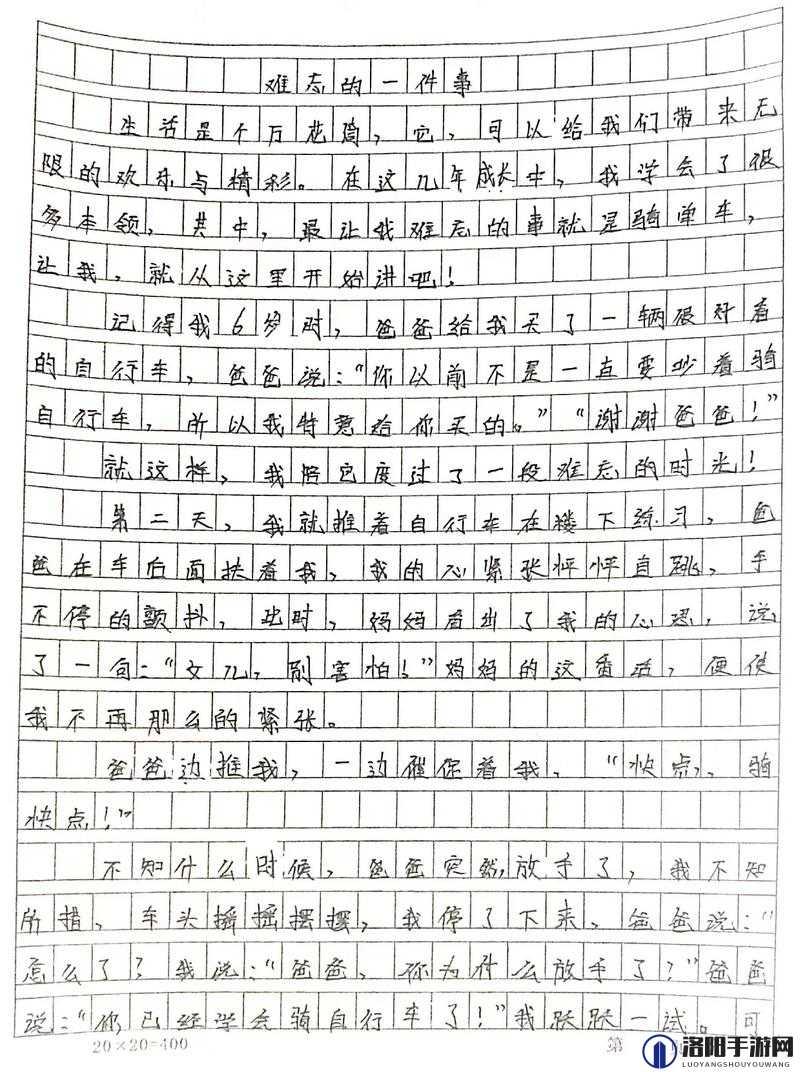 难忘的一件事
生活是个万花筒，它，可以给我们带来无
限的欢乐与精彩。在这几年成长中，我学会了很
多本领，其中，最让我难忘的事就是骑单车，
让我，就从这里开始讲吧！
记得我6岁时，爸爸给我买了一辆很好看
的自行车，爸爸说：“你以前不是一直要吵着骑
自行车，所以我特意给你买的。”“谢谢爸爸！”
就这样，我陪它度过了一段难忘的时光！
第二天，我就推着自行车在楼下练习，爸
爸在车后面扶着我，我的心紧张怦怦直跳，手
不停的颤抖，此时，妈妈看出了我的心思，说
了一句：“女儿，别害怕！”妈妈的这番话，便使
我不再那么的紧张。
爸爸边推我，一边催促着我，“快点，骑
快点！”
不知什么时候，爸爸突然放手了，我不知
所措，车头摇摇摆摆，我停了下来，爸爸说：“
怎么了？我说：“爸爸，你为什么放手了？”爸爸
说：“你已经学会骑自行车了！”我跃跃一试。可
20×20=400
第
洛阳手游网
LUOYANGSHOUYOUWANG